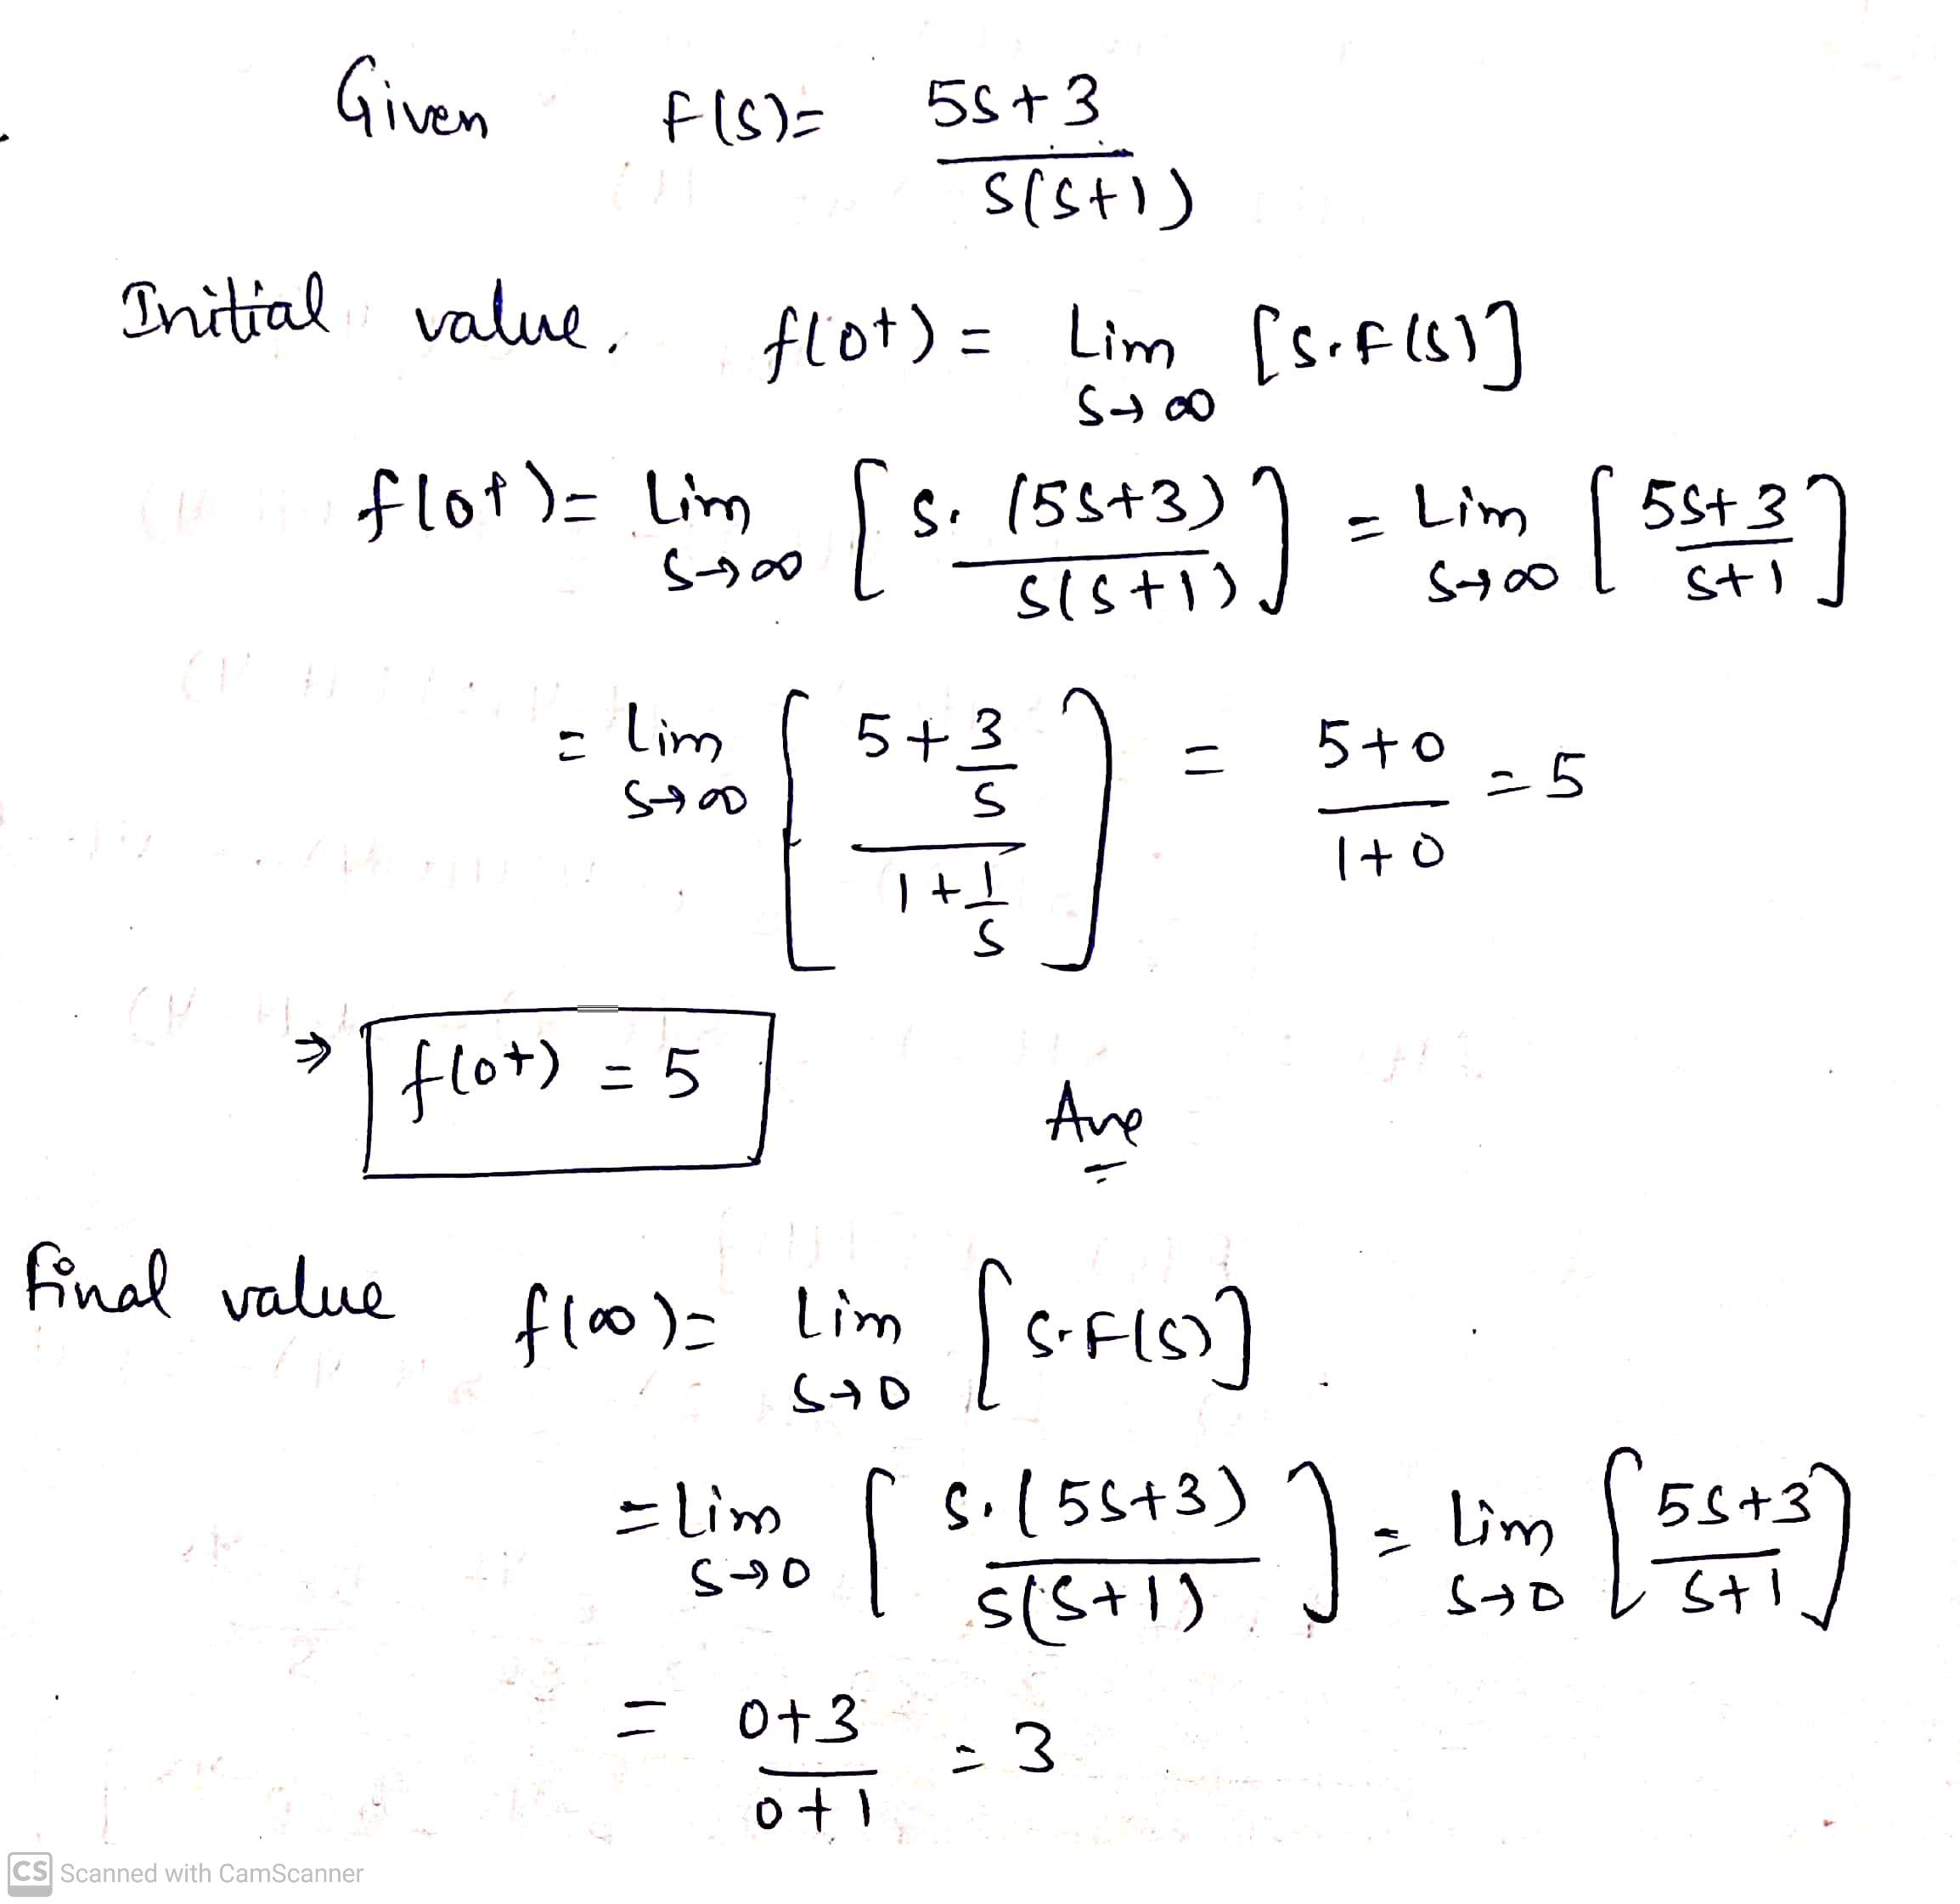 Given F(s)= 5s+3 / s(s+1)
Initial value, f(0+) = Lim s→∞ [s.F(s)]
f(0+) = Lim s→∞ [s.(5s+3) / s(s+1)] = Lim s→∞ [5s+3 / s+1]
= Lim s→∞ [5+3/s / 1+1/s] = 5+0 / 1+0 = 5
⇒ f(0+) = 5
Ans
Final value f(∞) = Lim s→0 [s.F(s)]
= Lim s→0 [s.(5s+3) / s(s+1)] = Lim s→0 [5s+3 / s+1]
= 0+3 / 0+1 = 3
CS Scanned with CamScanner